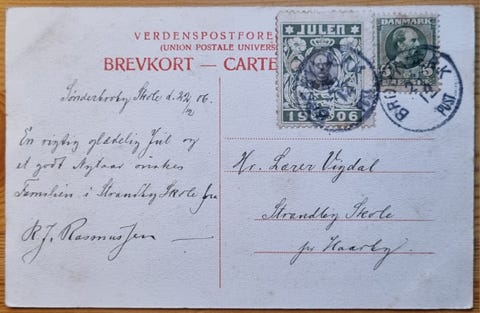 VERDENSPOSTFORE
(UNION POSTALE UNIVERS
BREVKORT — CARTE
JULEN
1906
DANMARK
5 5
Sønderbroby Skole d. 22/12 06.
En rigtig glædelig Jul og
et godt Nytaar ønskes
Familien i Strandby Skole fra
R. J. Rasmussen —
Hr. Lærer Vigdal
Strandby Skole
pr Haarby.